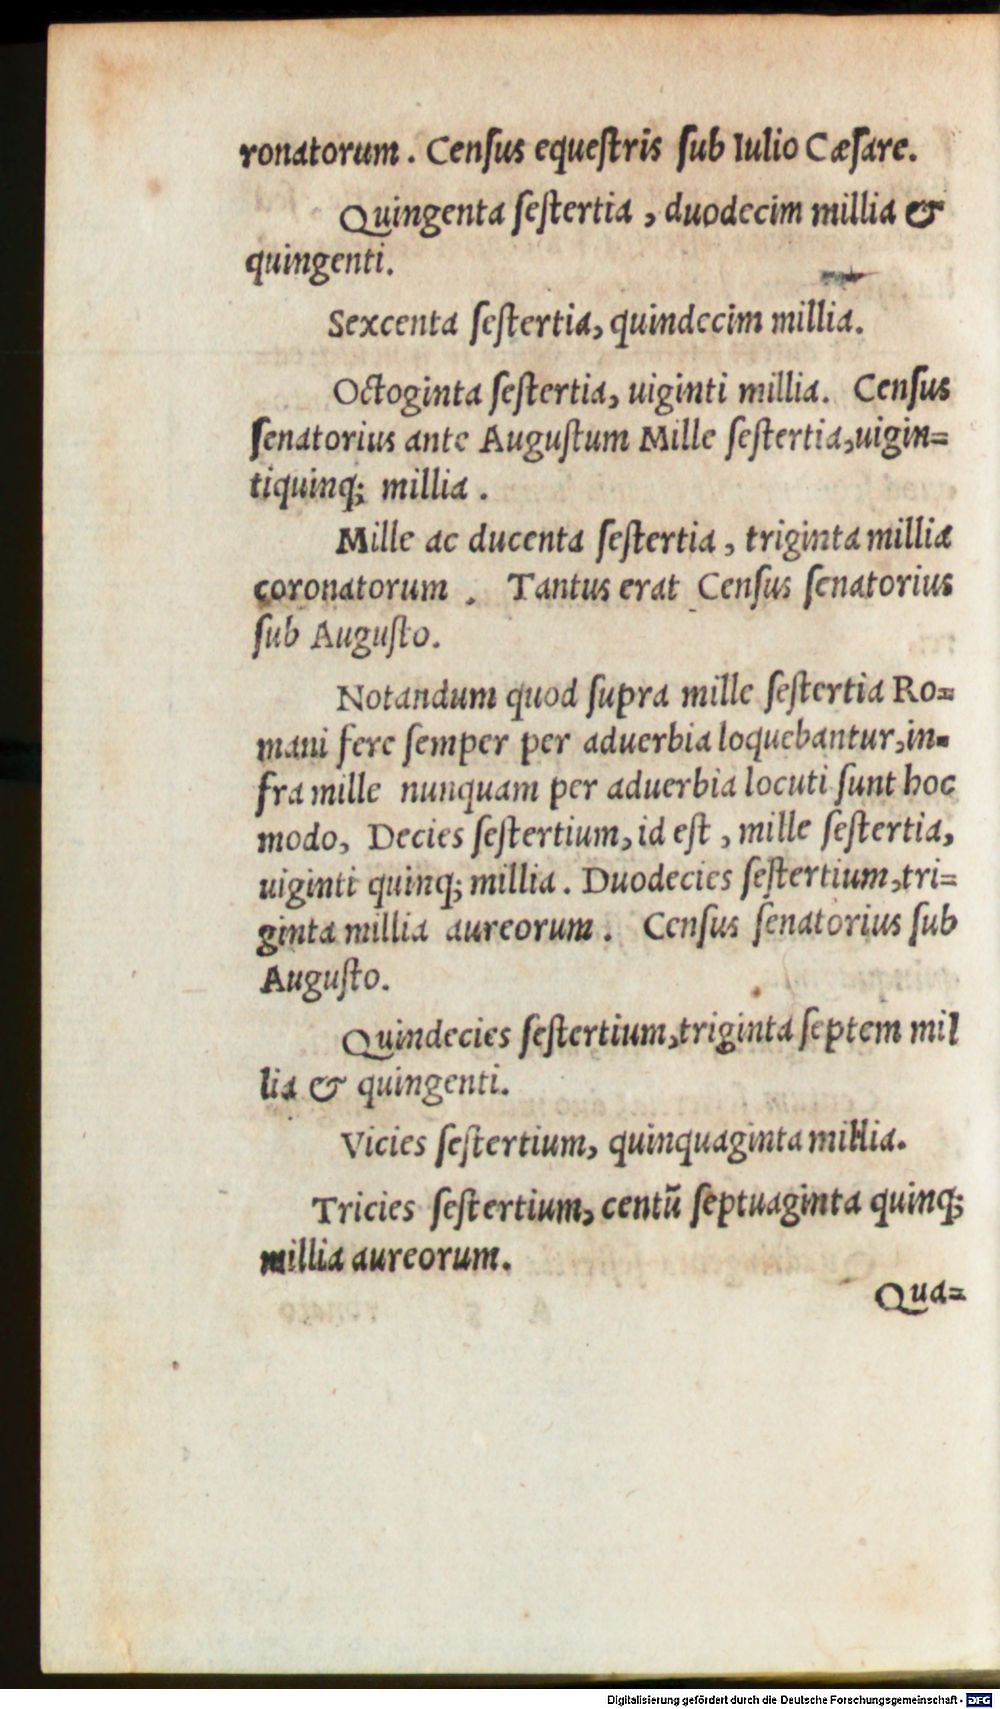 ronatorum. Census equeſtris ſub Iulio Cæſare.
Quingenta ſeſtertia, duodecim millia &
quingenti.
Sexcenta ſeſtertia, quindecim millia.
Octoginta ſeſtertia, uiginti millia. Cenſus
ſenatorius ante Auguſtum Mille ſeſtertia, uigin=
tiquinq; millia.
Mille ac ducenta ſeſtertia, triginta millia
coronatorum. Tantus erat Cenſus ſenatorius
ſub Auguſto.
Notandum quod ſupra mille ſeſtertia Ro=
mani fere ſemper per aduerbia loquebantur, in=
fra mille nunquam per aduerbia locuti ſunt hoc
modo, Decies ſeſtertium, id eſt, mille ſeſtertia,
uiginti quinq; millia. Duodecies ſeſtertium, tri=
ginta millia aureorum. Cenſus ſenatorius ſub
Auguſto.
Quindecies ſeſtertium, triginta ſeptem mil
lia & quingenti.
Vicies ſeſtertium, quinquaginta millia.
Tricies ſeſtertium, centū ſeptuaginta quinq;
millia aureorum.
Qua=
Digitalisierung gefördert durch die Deutsche Forschungsgemeinschaft - DFG